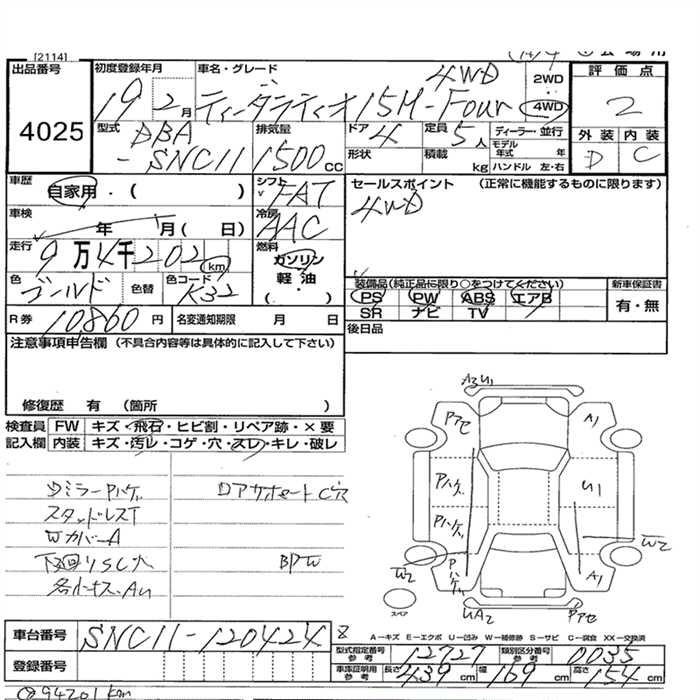 [2114]
出品番号
4025
初度登録年月
19 2月
車名・グレード
ティーダラティオ 15M-Four 4WD
2WD
4WD
評価点
2
外装 内装
D C
型式
DBA
-SNC11
排気量
1500cc
ドア
4
定員
5人
ディーラー・並行
形状
積載
kg
モデル年式
年
ハンドル 左・右
車歴
自家用・( )
シフト
FAT
車検
年 月( 日)
冷房
AAC
走行
9万4千202km
燃料
ガソリン
軽油
( ・ )
色
ゴールド
色替
色コード
K32
セールスポイント (正常に機能するものに限ります)
4WD
装備品(純正品に限り○をつけてください)
PS PW ABS エアB
SR ナビ TV
新車保証書
有・無
R券 10860円
名変通知期限 月 日
後日品
注意事項申告欄 (不具合内容等は具体的に記入して下さい)
修復歴 有 (箇所 )
検査員 FW キズ・飛石・ヒビ割・リペア跡・×要
記入欄 内装 キズ・汚レ・コゲ・穴・スレ・キレ・破レ
DミラーPハゲ
スタッドレスT
WカバーA
BPW
A3 U1
Pアセ
A1
Pハゲ
U1
Pハゲ
W2
W2
Pハゲ
A1
UA2
Pアセ
スペア
A-キズ E-エクボ U-凹み W-補修跡 S-サビ C-腐食 XX-交換済
車台番号 SNC11-120424
8
登録番号
型式指定番号 参考 12727
類別区分番号 参考 0035
車庫証明用 参考 長さ 439cm 幅 169cm 高さ 154cm
94201km